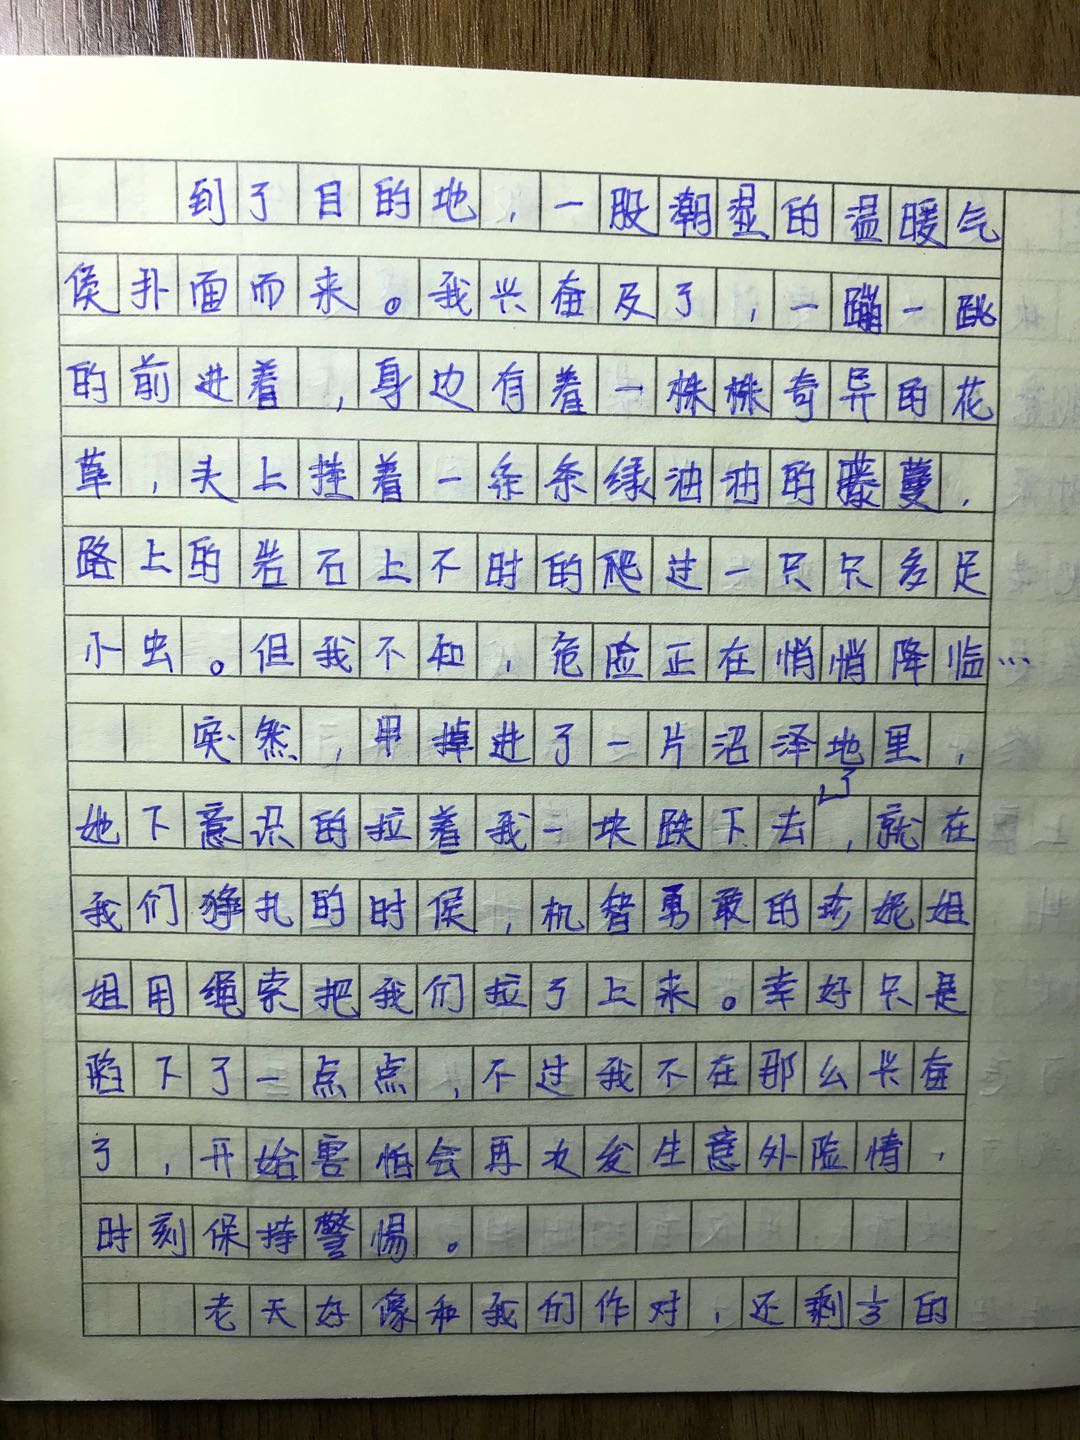 到了目的地，一股潮湿的温暖气
侯扑面而来。我兴奋及了，一蹦一跳
的前进着，身边有着一株株奇异的花
草，头上挂着一条条绿油油的藤蔓，
路上的岩石上不时的爬过一只只多足
小虫。但我不知，危险正在悄悄降临…
突然，甲掉进了一片沼泽地里，
她下意识的拉着我一块跌下去了，就在
我们狰扎的时侯，机智勇敢的珍妮姐
姐用绳索把我们拉了上来。幸好只是
陷下了一点点，不过我不在那么兴奋
了，开始害怕会再次发生意外险情，
时刻保持警惕。
老天好像和我们作对，还剩⅓的